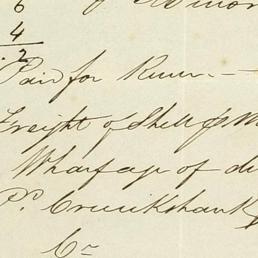 6
4
. 2
Paid for Rum. —
Freight of Shell
Wharfage of
Pr. Cruickshank
Cr